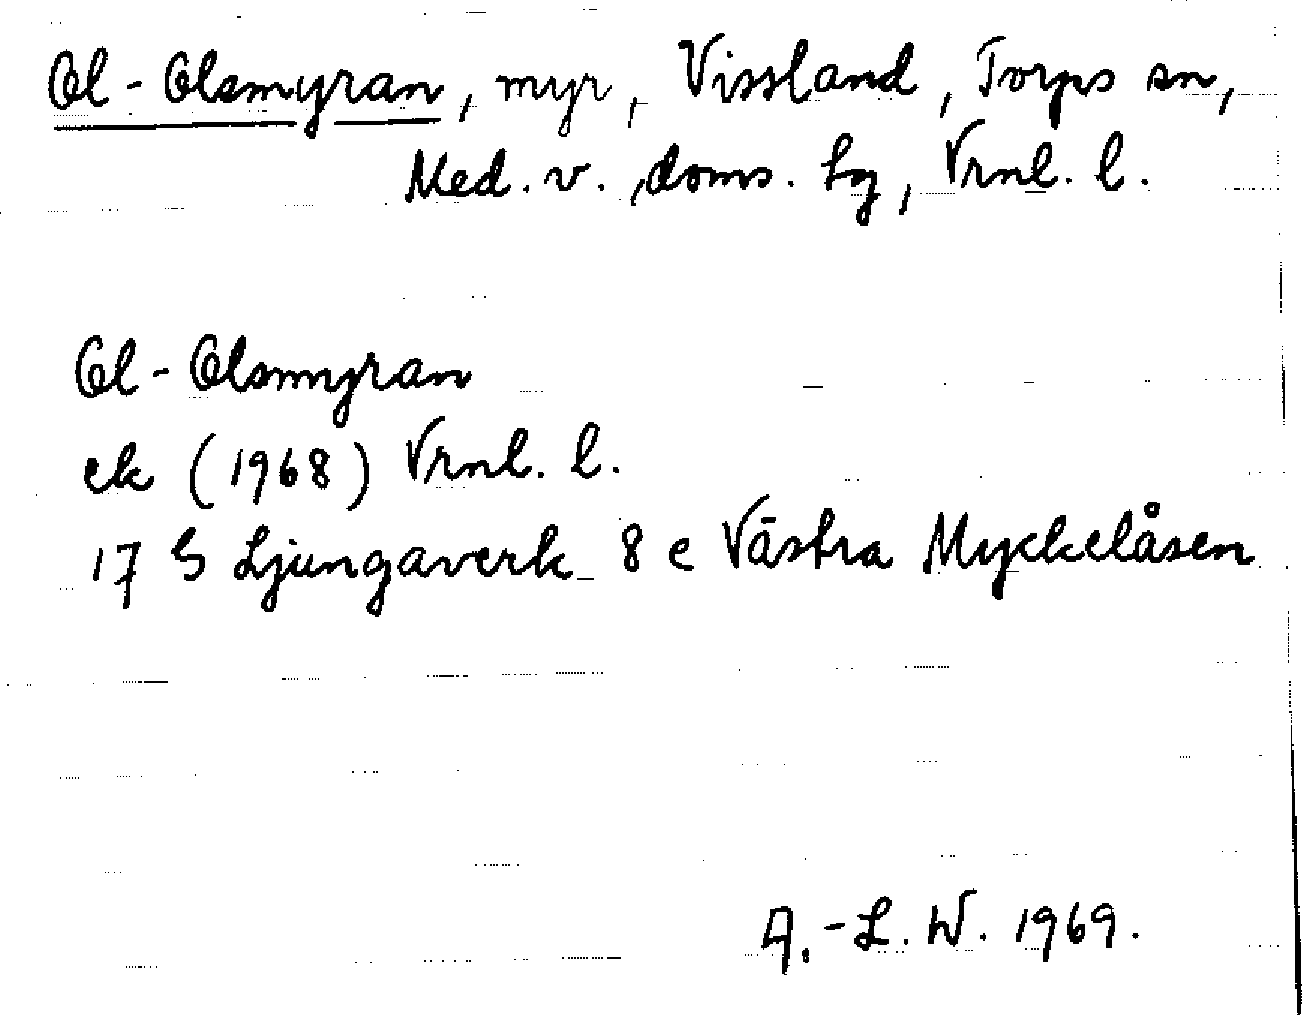 Ol-Olsmyran, myr, Vissland, Torps sn,
Med. v. doms. hg, Vrnl. l.
Ol-Olsmyran
ek (1968) Vrnl. l.
17 G Ljungaverk 8 e Västra Myckelåsen
A.-L. W. 1969.